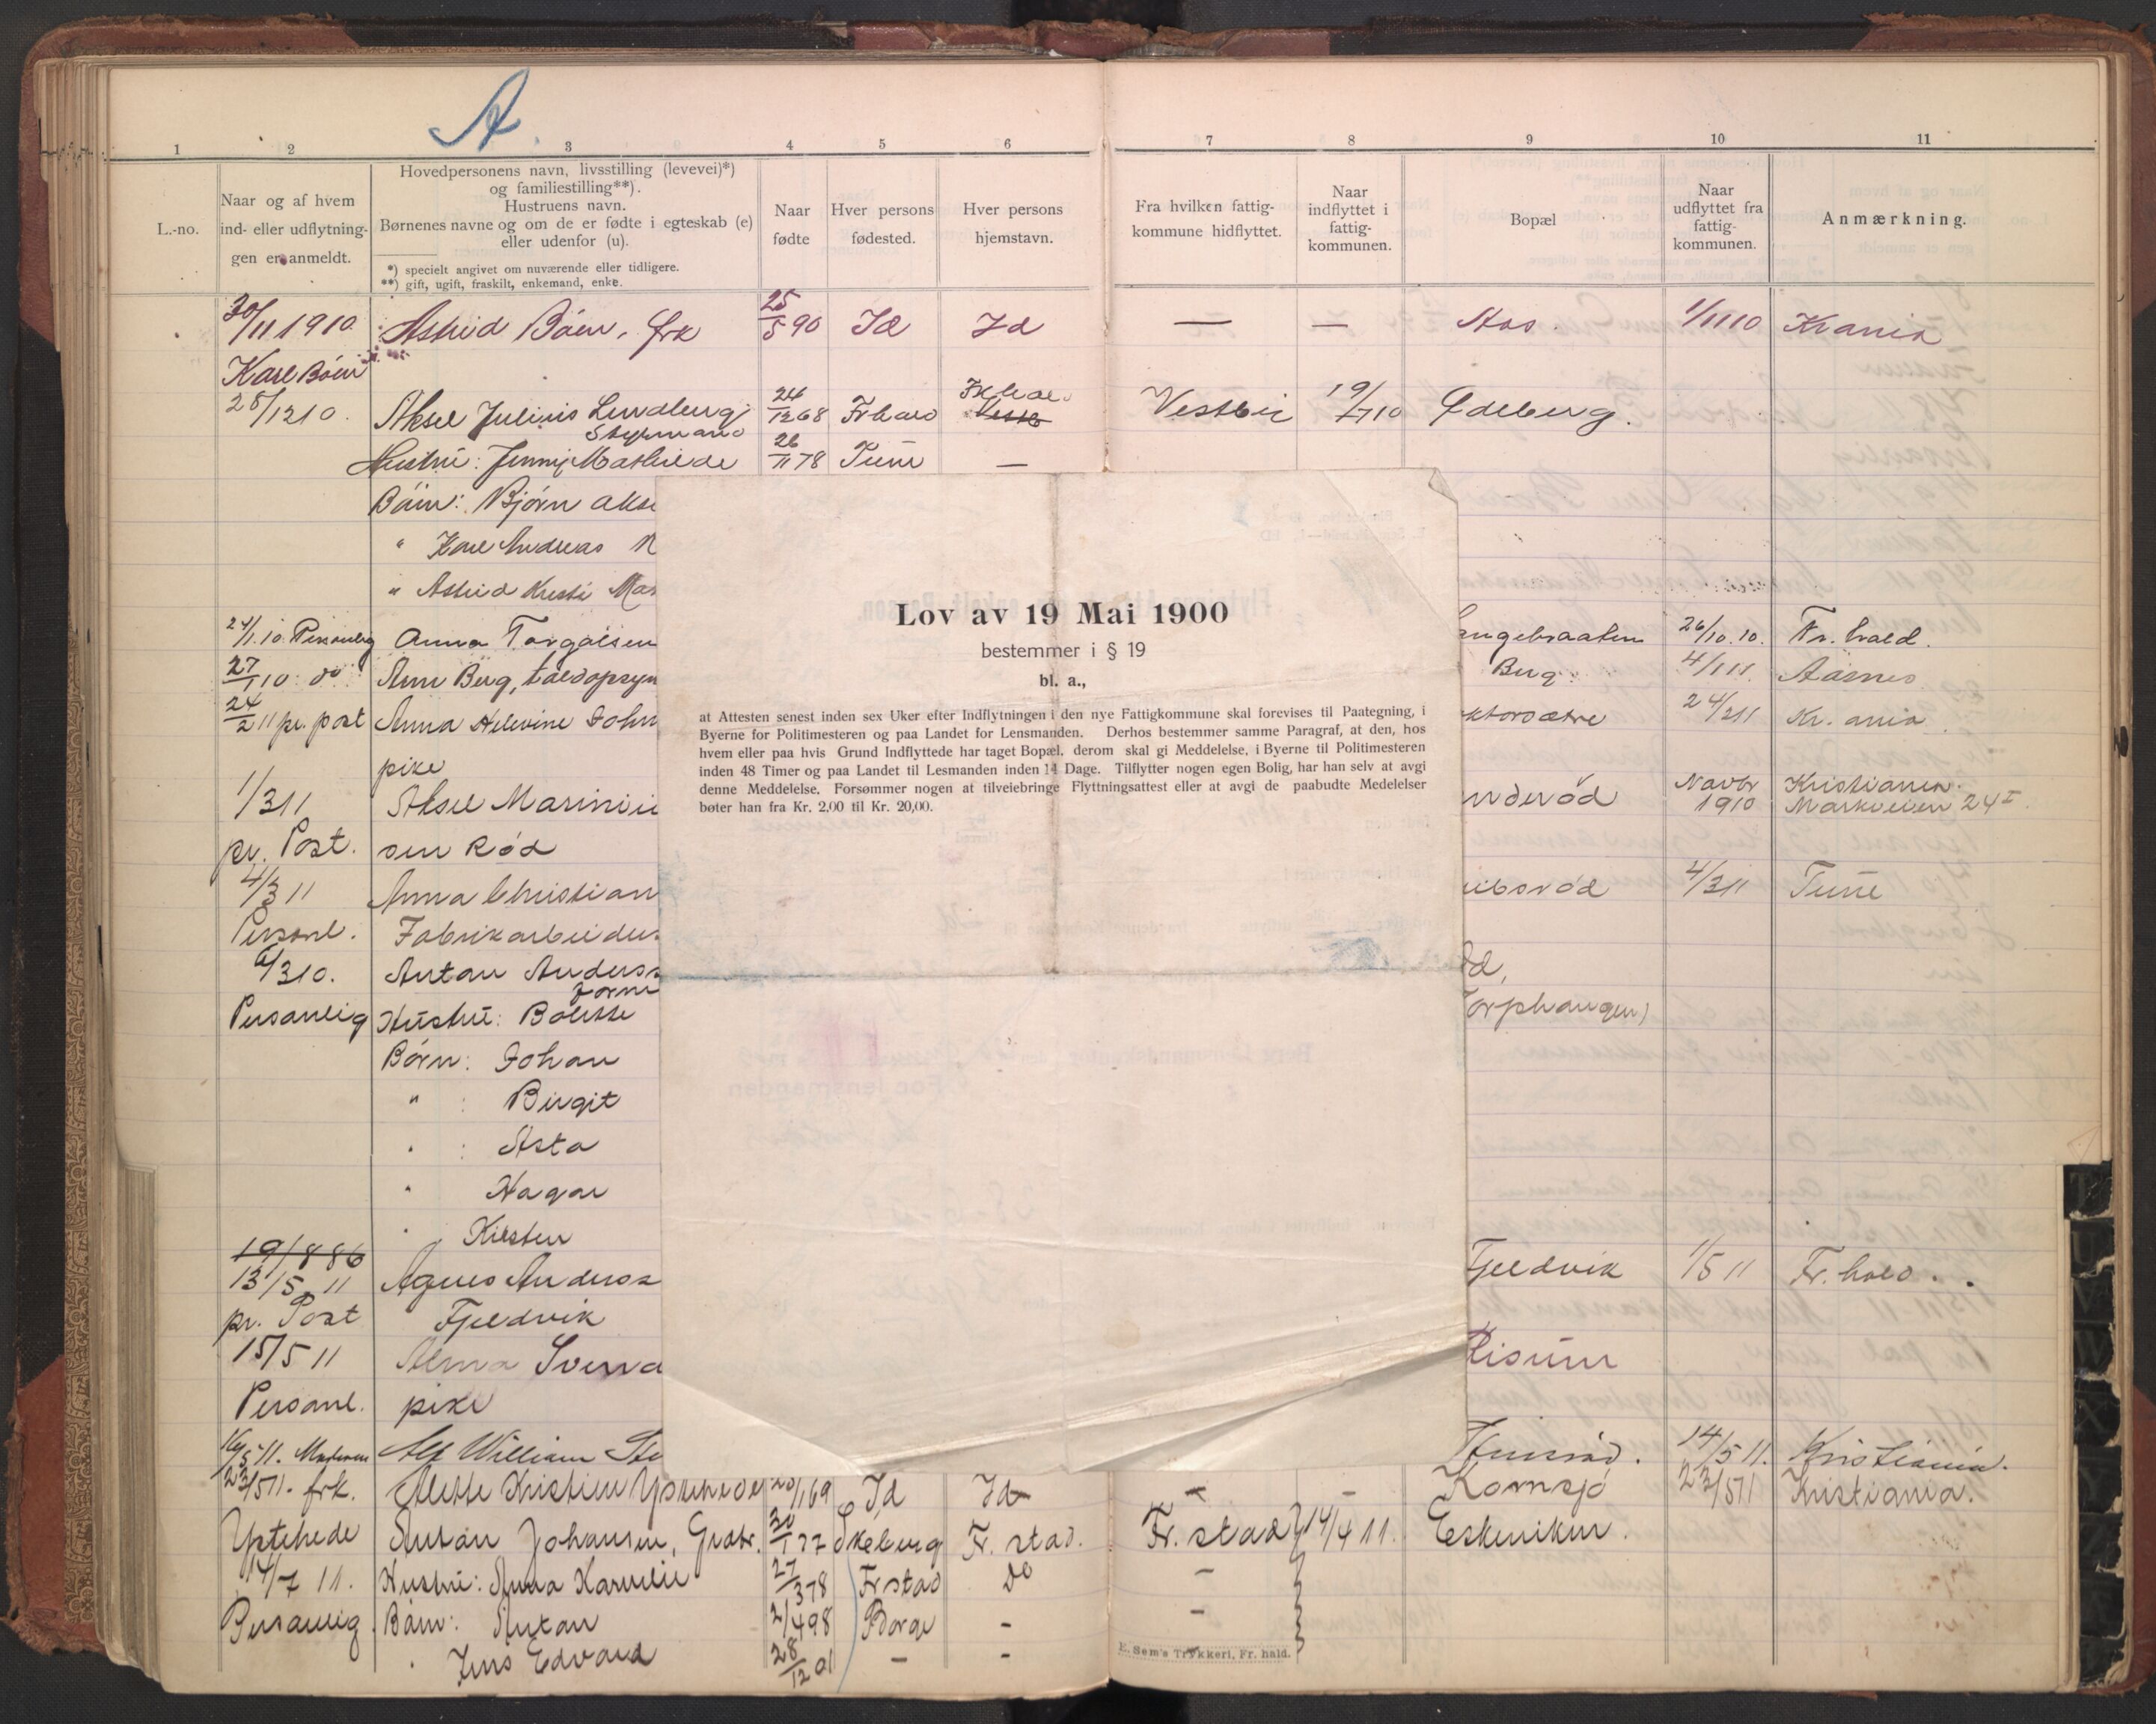 A.
1 2 3 4 5 6 7 8 9 10 11
L.-no.
Naar og af hvem
ind- eller udflytnin-
gen er anmeldt.
Hovedpersonens navn, livsstilling (levevei)*)
og familiestilling**).
Hustruens navn.
Børnenes navne og om de er fødte i egteskab (e)
eller udenfor (u).
*) specielt angivet om nuværende eller tidligere.
**) gift, ugift, fraskilt, enkemand, enke.
Naar
fødte
Hver persons
fødested.
Hver persons
hjemstavn.
Fra hvilken fattig-
kommune hidflyttet.
Naar
indflyttet i
fattig-
kommunen.
Bopæl
Naar
udflyttet fra
fattig-
kommunen.
Anmærkning.
30/11 1910 Astrid Böen, frk 25/5 90 Id Id — — Aas. 1/11 10 Kr ania
Karl Böen
28/12 10. Aksel Julius Lundberg 24/12 68 Frhald Frhald Vestbi 19/7 10 Edeberg.
Styrmand
Hustru: Jenny Mathilde 26/11 78 Tune —
Börn: Björn Akse
" Karl Andreas
" Astrid Kirsti Mar
24/1.10. Personlig Anna Torgalsen 26/10.10. Fr. hald.
27/1 10. do Ann Berg, Berg 4/1 11. Aasnes
24/2 11 pr. post Anna Helevine John 24/2 11 Kr. ania
pike
1/3 11 Aksel Marinii nderöd Novbr 1910 Kristiania. Markveien 24 I.
pr. Post. sen Röd
4/3 11 Anna Christian 4/3 11 Tune
Personl. Fabrikarbeider
6/3 10. Anton Anderss
Personlig Hustru: Bolette
Börn: Johan
" : Birgit
" : Asta
" Hagar
" Kirsten
19/8 86
13/5 11 Agnes Anderss Fjeldvik 1/5 11 Fr. hald.
pr. Post Fjeldvik
15/5 11 Alma Svens Risum
Personl. pike
16/5 11. Alf William 14/5 11. Kristiania.
23/5 11. frk. Alette Kristine Ystehede Id Id — — Kornsjö 23/5 11 Kristiania.
Ystehede Anton Johansen, 30/1 77 Skeberg Fr. stad. Fr. stad 14/4 11. Eskeviken.
14/7 11. Hustru: Anna Karulie 27/3 78 Frstad do —
Personlig Börn: Anton 2/4 98 Borge - —
" Jens Edvard 28/12 01 — -
Lov av 19 Mai 1900
bestemmer i § 19
bl. a.,
at Attesten senest inden sex Uker efter Indflytningen i den nye Fattigkommune skal forevises til Paategning, i
Byerne for Politimesteren og paa Landet for Lensmanden. Derhos bestemmer samme Paragraf, at den, hos
hvem eller paa hvis Grund Indflyttede har taget Bopæl. derom skal gi Meddelelse, i Byerne til Politimesteren
inden 48 Timer og paa Landet til Lesmanden inden 14 Dage. Tilflytter nogen egen Bolig, har han selv at avgi
denne Meddelelse. Forsømmer nogen at tilveiebringe Flyttningsattest eller at avgi de paabudte Medelelser
bøter han fra Kr. 2,00 til Kr. 20,00.
E. Sem's Trykkeri, Fr. hald.